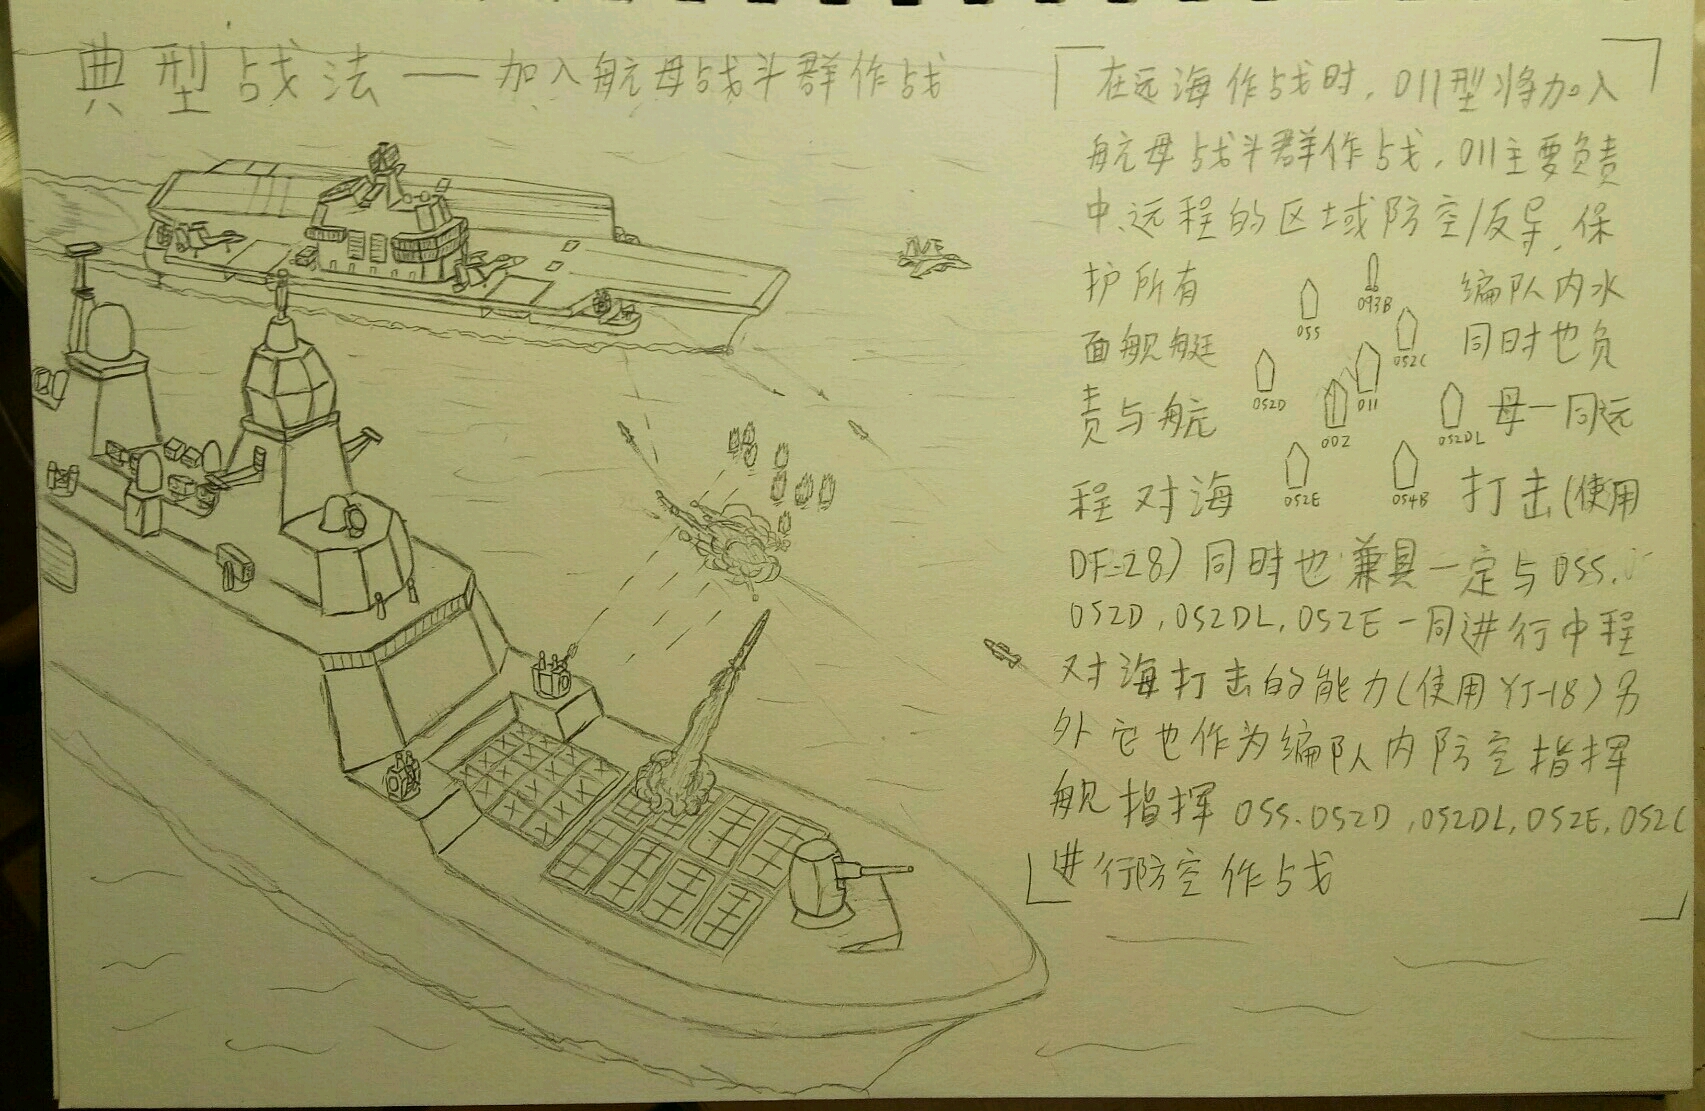 典型战法——加入航母战斗群作战
在远海作战时，011型将加入
航母战斗群作战，011主要负责
中、远程的区域防空/反导，保
护所有 编队内水
面舰艇 同时也负
责与航 母一同远
程对海 打击(使用
DF-28)同时也兼具一定与055、
052D,052DL,052E一同进行中程
对海打击的能力(使用YJ-18)另
外它也作为编队内防空指挥
舰指挥055、052D,052DL,052E,052C
进行防空作战
093B
055
052C
052D
011
002
052DL
052E
054B